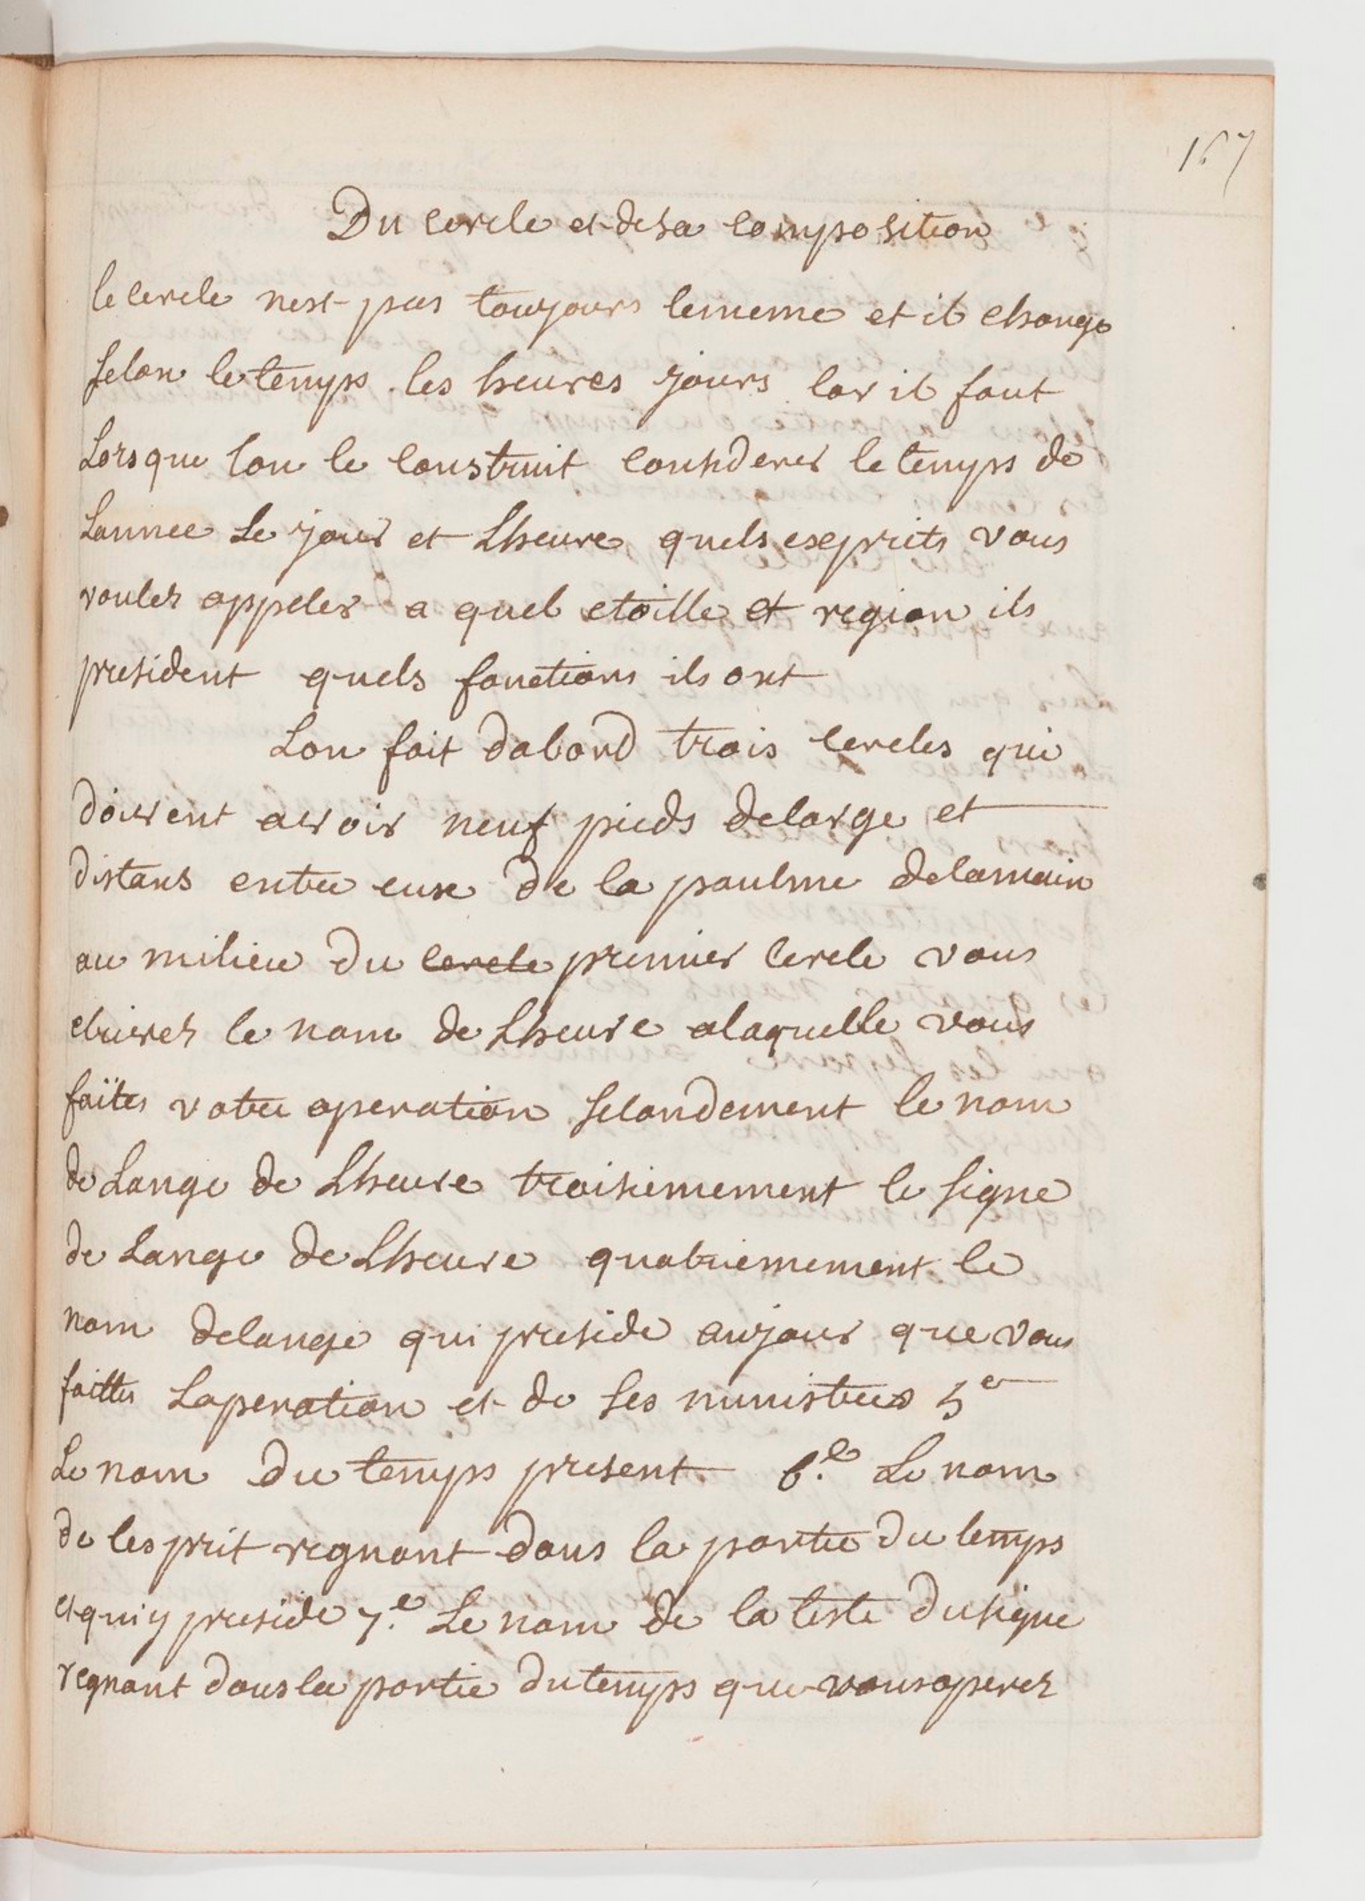 167
Du cercle et de sa composition
le cercle nest pas toujours lememe et il change
selon le temps les heures jours car il faut
Lorsque lon le construit considerer le temps de
Lannee Le jour et Lheure quels esprits vous
voulez appeler a quel etoille et region ils
president quels fonctions ils ont
Lon fait dabord trois cercles qui
doivent avoir neuf pieds delarge et
distans entre eux de la paulme delamain
au milieu du cercle premier cercle vous
ecrirez le nom de Lheure alaquelle vous
faites votre operation secondement le nom
de Lange de Lheure troisiemement le signe
de Lange de Lheure quatriemement le
nom delange qui preside aujour que vous
faittes Loperation et de ses ministres 5e
Le nom du temps present 6.e Le nom
de lesprit regnant dans la partie du temps
et qui y preside 7.e Le nom de la teste du signe
regnant dans la partie du temps que vous operez